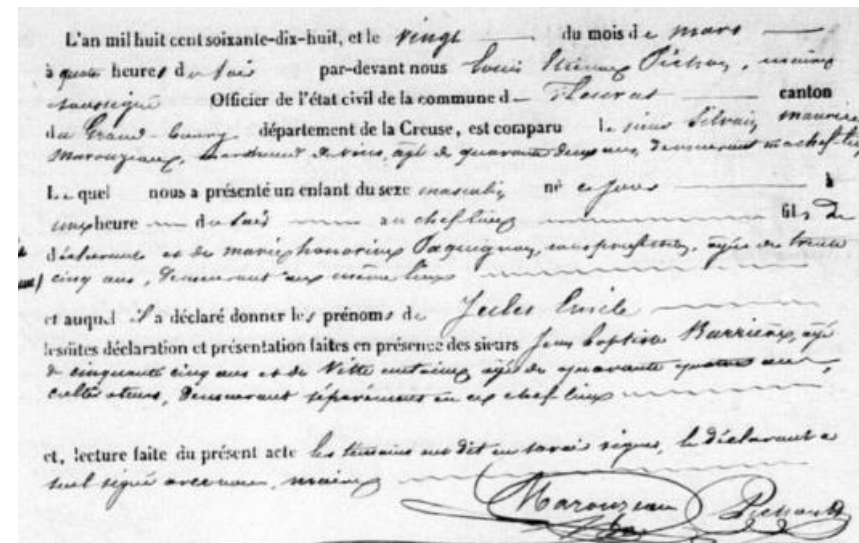 L'an mil huit cent soixante-dix-huit, et le vingt du mois de mars
à quatre heures du soir par-devant nous Louis Etienne Pichon, maire
soussigné Officier de l'état civil de la commune d Fleurat canton
du Grand-bourg département de la Creuse, est comparu le sieur Silvain maurice
Marouzeaux, marchand de vins, agé de quarante deux ans, demeurant au chef-lieu
Le quel nous a présenté un enfant du sexe masculin né ce jour à
une heure du soir au chef lieu fils de
déclarant et de marie honorine age de trente
cinq ans, demeurant au même lieu
et auquel il a déclaré donner les prénoms de Jules Emile
lesdites déclaration et présentation faites en présence des sieurs Jean baptiste Barrière, agé
de cinquante cinq ans et de antoine agé de quarante quatre ans,
cultivateurs, demeurant séparément en ce chef lieu
et, lecture faite du présent acte les témoins ont dit ne savoir signer, le déclarant a
seul signé avec nous, maire
Marouzeau